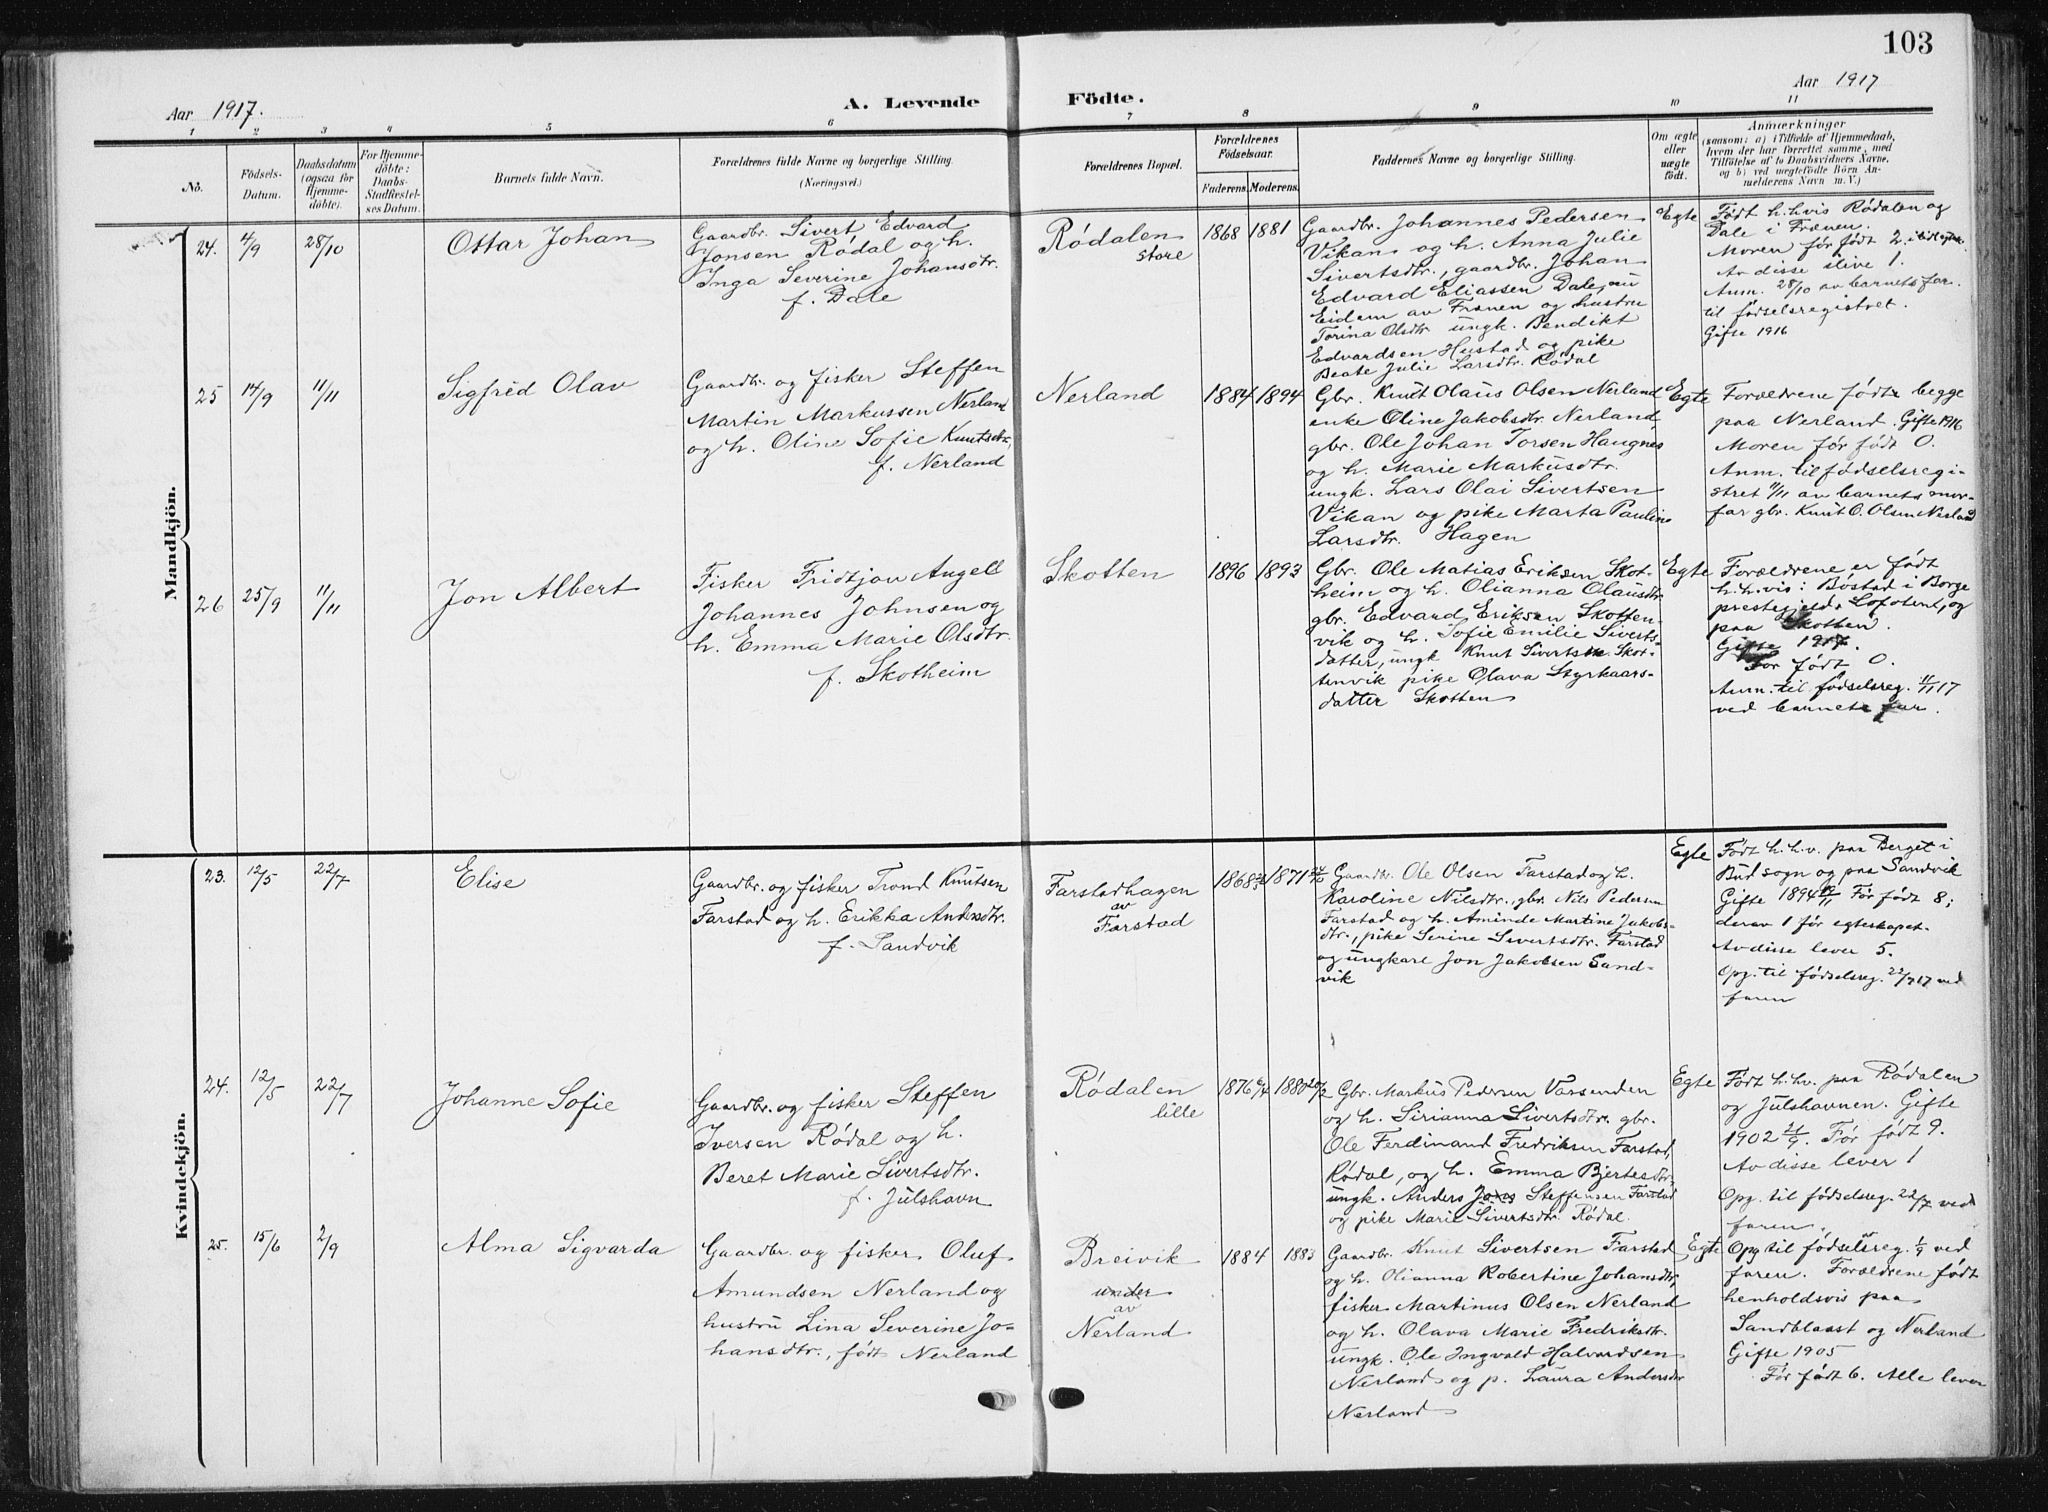 103
Aar 1917.
A. Levende
Födte.
Aar 1917
1
2
3
4
5
6
7
8
9
10
11
No.
Födsels-
Datum.
Daabsdatum
(ogsaa for
Hjemme-
döbte).
For Hjemme-
döbte:
Daabs-
Stadfæstel-
ses Datum.
Barnets fulde Navn.
Forældrenes fulde Navne og borgerlige Stilling.
(Næringsvei.)
Forældrenes Bopæl.
Forældrenes
Födselsaar.
Faderens.
Moderens.
Faddernes Navne og borgerlige Stilling.
Om ægte
eller
uægte
födt.
Anmærkninger
(saasom: a) i Tilfælde af Hjemmedaab,
hvem der har forrettet samme, med
Tilföielse af to Daabsvidners Navne,
og b) ved uægtefödte Börn An-
melderens Navn m. V.)
Mandkjön.
24.
4/9
28/10
Ottar Johan
Gaardbr. Sivert Edvard
Jonsen Rødal og h.
Inga Severine Johansdtr.
f. Dale
Rødalen
store
1868
1881
Gaardbr. Johannes Pedersen
Vikan og h. Anna Julie
Sivertsdtr., gaardbr. Johan
Edvard Eliassen Dale, nu
Eidem av Frænen og hustru
Torina Olsdtr. ungk. Bendikt
Edvardsen Hustad og pike
Beate Julie Larsdtr. Rødal
Egte
Født h.hvis Rødalen og
Dale i Frænen.
Moren før født 2
Av disse ilive 1.
Anm. 28/10 av barnets far.
til fødselsregistret.
Gifte 1916
25
14/9
11/11
Sigfred Olav
Gaardbr. og fisker Steffen
Martin Markussen Nerland
og h. Oline Sofie Knutsdtr,
f. Nerland
Nerland
1884
1894
Gbr. Knut Olaus Olsen Nerland
enke Oline Jakobsdtr. Nerland,
gbr. Ole Johan Torsen Haugnes
og h. Marie Markusdtr.
ungk. Lars Olai Sivertsen
Vikan og pike Marta Pauline
Larsdtr. Hagen
Egte
Forældrene født begge
paa Nerland. Gifte 1916
Moren før født 0.
Anm. til fødselsregi-
stret 11/11 av barnets mor-
far gbr. Knut O. Olsen Nerland
26
25/9
11/11
Jon Albert
Fisker Fridtjov Angell
Johannes Johnsen og
h. Emma Marie Olsdtr.
f. Skotheim
Skotten
1896
1893
Gbr. Ole Matias Eriksen Skot-
heim og h. Olianna Olausdtr.
gbr. Edvard Eriksen Skotten-
vik og h. Sofie Emilie Siverts-
datter, ungk Knut Sivertsen Skot-
tenvik pike Olava Styrkaars-
datter Skotten
Egte
Forældrene er født
h.h.vis: Bøstad i Borge
prestegjeld, Lofoten, og
paa Skotten.
Gifte 1917.
Før født 0.
Anm. til fødselsreg. 11/11 17
ved barnets far.
Kvindekjön.
23.
12/5
22/7
Elise
Gaardbr. og fisker Trond Knutsen
Farstad og h. Erikka Andersdtr.
f. Sandvik
Farstadhagen
av
Farstad
1868
1871
Gaardbr. Ole Olsen Farstad og h.
Karoline Nilsdtr., gbr. Nils Pedersen
Farstad og h. Aminde Martine Jakobs-
dtr., pike Serine Sivertsdtr. Farstad
og ungkare Jon Jakobsen Sand-
vik
Egte
Født h.h.v. paa Berget i
Bud sogn og paa Sandvik
Gifte 1894 Før født 8;
derav 1 før egteskapet.
Av disse lever 5.
Opg. til fødselsreg. 22/7 17 ved
faren
24.
12/5
22/7
Johanne Sofie
Gaardbr. og fisker Steffen
Iversen Rødal og h.
Beret Marie Sivertsdtr.
f. Julshavn
Rødalen
lille
1876
1880 20/2
Gbr. Markus Pedersen Varsenden
og h. Sirianna Sivertsdtr. gbr.
Ole Ferdinand Fredriksen Farstad,
Rødal, og h. Emma Bjertesdtr.
ungk. Anders Jons Steffensen Farstad
og pike Marie Sivertsdtr. Rødal.
Egte
Født h.h.v. paa Rødalen
og Julshavnen. Gifte
1902 21/9. Før født 9.
Av disse lever 1
Opg. til fødselsreg. 22/7 ved
faren.
25.
15/6
2/9
Alma Sigvarda
Gaardbr. og fisker Oluf
Amundsen Nerland og
hustru Lina Severine Jo-
hansdtr., født Nerland
Breivik
under
av
Nerland
1884
1883
Gaardbr. Knut Sivertsen Farstad
og h. Olianna Robertine Johansdtr,
fisker Martinus Olsen Nerland
og h. Olava Marie Fredriksdtr.
ungk. Ole Ingvald Halvardsen
Nerland og p. Laura Andersdtr
Nerland
Egte
Opg til fødselsreg. 1/9 ved
faren. Forældrene født
henholdsvis paa
Sandblaast og Nerland
Gifte 1905
Før født 6. Alle lever